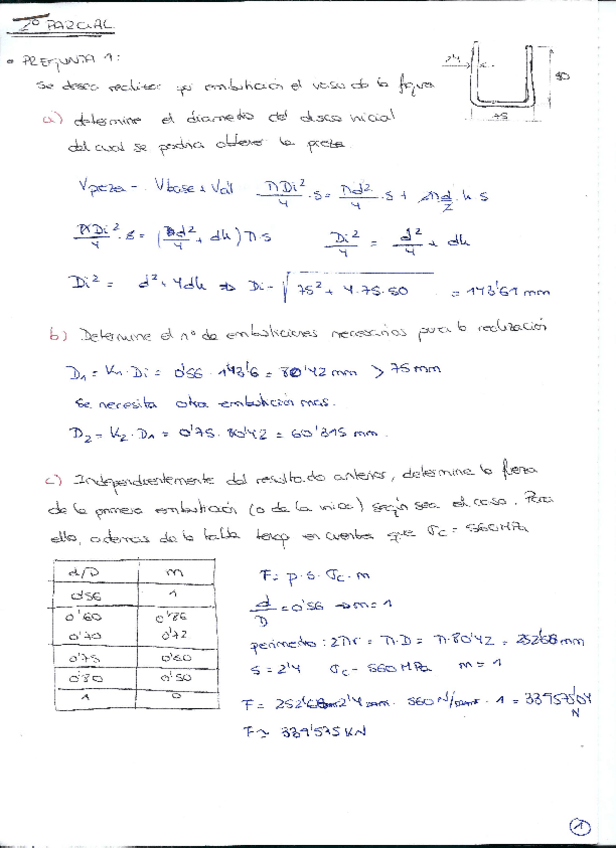 2º PARCIAL
• PREGUNTA 1:
Se desea realizar por embutición el vaso de la figura
2'4
50
75
a) determine el diametro del disco inicial
del cual se podria obtener la pieza
Vpieza = Vbase + Vál πDi²/4 · s = πd²/4 · s + πd h s
πDi²/4 · s = (d²/4 + dh) π s Di²/4 = d²/4 + dh
Di² = d² + 4dh ⇒ Di = √75² + 4·75·50 = 143'61 mm
b) Determine el nº de embuticiones necesarias para la realización
D₁ = K₁ · Di = 0'56 · 143'6 = 80'42 mm > 75 mm
Se necesita otra embutición mas.
D₂ = K₂ · D₁ = 0'75 · 80'42 = 60'315 mm.
c) Independientemente del resultado anterior, determine la fuerza
de la primera embutición (o de la única) según sea el caso. Para
ello, ademas de la tabla tenga en cuenta que σc = 560 MPa
d/D m
0'56 1
0'60 0'86
0'70 0'72
0'75 0'60
0'80 0'50
1 0
F = p · s · σc · m
d/D = 0'56 → m = 1
perimetro: 2πr = π·D = π·80'42 = 252'68 mm
s = 2'4 σc = 560 MPa m = 1
F = 252'68mm · 2'4 mm · 560 N/mm² · 1 = 339575'04 N
F ≈ 339'575 KN
1